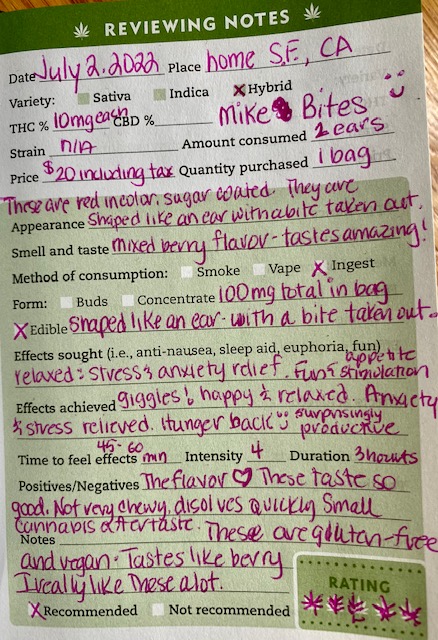 REVIEWING NOTES
Date July 2.2022 Place home S.F., CA
Variety: Sativa Indica X Hybrid
THC % 10mg each CBD % Mike Bites
Strain n/A Amount consumed 2 ears
Price $20 including tax Quantity purchased 1 bag
These are red in color, sugar coated. They are
Appearance shaped like an ear with a bite taken out.
Smell and taste mixed berry flavor - tastes amazing!
Method of consumption: Smoke Vape X Ingest
Form: Buds Concentrate 100mg total in bag
X Edible shaped like an ear - with a bite taken out.
Effects sought (i.e., anti-nausea, sleep aid, euphoria, fun) appetite
relaxed: stress & anxiety relief. Fun & stimulation
Effects achieved giggles! happy & relaxed. Anxiety
& stress relieved. Hunger back surprisingly productive
Time to feel effects 45-60 mn Intensity 4 Duration 3 hours
Positives/Negatives The flavor ♡ These taste so
good. Not very chewy, disolves quickly Small
cannabis aftertaste.
Notes These are gluten-free
and vegan. Tastes like berry
I really like These a lot.
RATING
X Recommended Not recommended